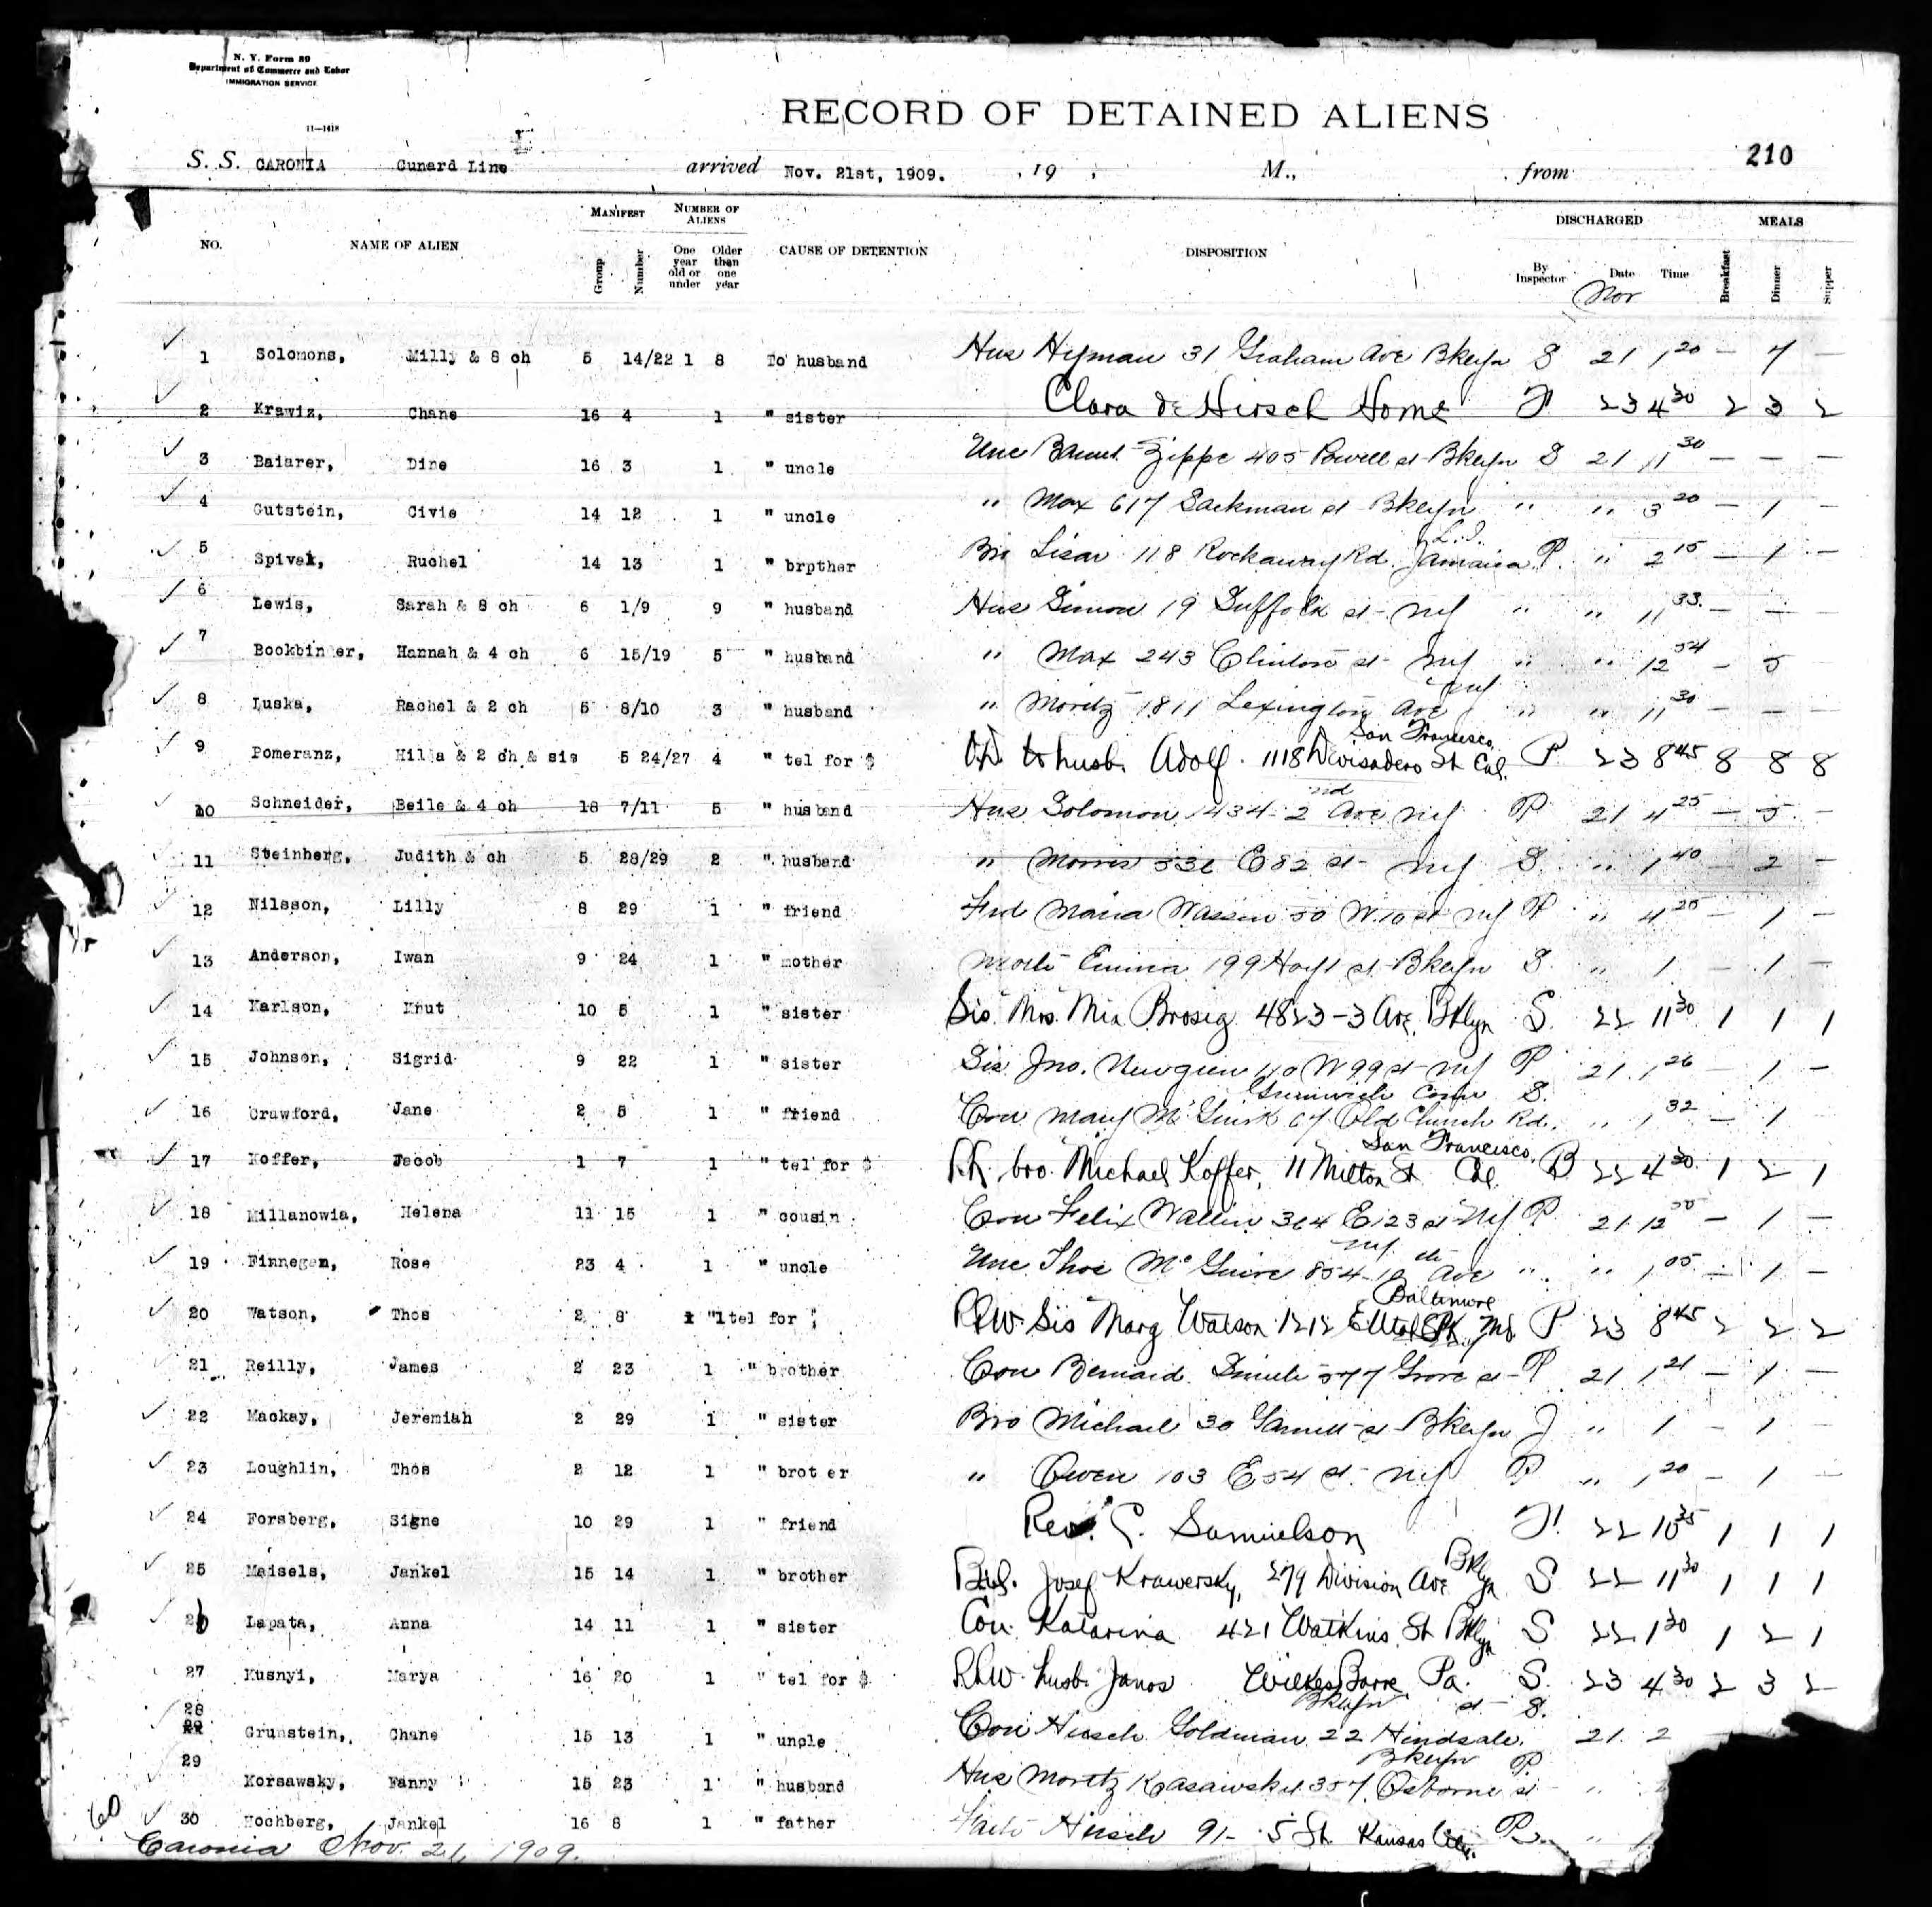 N. Y. Form 89
Department of Commerce and Labor
IMMIGRATION SERVICE
11—1418
RECORD OF DETAINED ALIENS
210
S. S. CARONIA Cunard Line arrived Nov. 21st, 1909. , 19 , M., from
NO. NAME OF ALIEN MANIFEST Group Number NUMBER OF ALIENS One year old or under Older than one year CAUSE OF DETENTION DISPOSITION DISCHARGED By Inspector Date Time MEALS Breakfast Dinner Supper
Nov
1 Solomons, Milly & 8 ch 5 14/22 1 8 To husband Hus Hyman 31 Graham Ave Bklyn S 21 1 20 — 7 —
2 Krawiz, Chane 16 4 1 " sister Clara de Hirsch Home 23 4 30 2 3 2
3 Baiarer, Dine 16 3 1 " uncle Unc Zippe 405 Powell st Bklyn S 21 11 30 — — —
4 Gutstein, Civie 14 12 1 " uncle " Max 617 Sackman st Bklyn " " 3 20 — 1 —
5 Spivak, Ruchel 14 13 1 " brpther Bro Lisar 118 Rockaway Rd. Jamaica L.I. P. " 2 15 — 1 —
6 Lewis, Sarah & 8 ch 6 1/9 9 " husband Hus Simon 19 Suffolk st NY " " 11 33 — — —
7 Bookbin er, Hannah & 4 ch 6 15/19 5 " husband " Max 243 Clinton st NY " " 12 54 — 5
8 Luska, Rachel & 2 ch 5 8/10 3 " husband " Moritz 1811 Lexington Ave NY " " 11 30 — — —
9 Pomeranz, Hil a & 2 ch & sis 5 24/27 4 " tel for $ to husb. Adolf. 1118 Divisadero St San Francisco, Cal. P. 23 8 45 8 8 8
10 Schneider, Beile & 4 ch 18 7/11 5 " husband Hus Solomon 1434 2nd Ave NY P 21 4 25 — 5 —
11 Steinberg, Judith & ch 5 28/29 2 " husband " Morris 336 E 82 st NY S. " 1 40 — 2 —
12 Nilsson, Lilly 8 29 1 " friend Frd Maria Wassen 50 W. 10 st NY P " 4 25 — 1 —
13 Anderson, Iwan 9 24 1 " mother Moth Emma 199 Hoyt st Bklyn S. " 1 — 1 —
14 Karlson, Knut 10 5 1 " sister Sis. Mrs. Mia Broseg 4823-3 Ave. Bklyn S. 22 11 30 1 1 1
15 Johnson, Sigrid 9 22 1 " sister Sis Jno. 110 W 99 st NY P 21 1 26 — 1 —
16 Crawford, Jane 2 5 1 " friend Cou Mary 67 Old Church Rd. Greenwich Conn S. " 1 32 — 1 —
17 Koffer, Jacob 1 7 1 " tel for $ bro. Michael Koffer, 11 Milton St San Francisco, Cal. B 22 4 30 1 2 1
18 Millanowia, Helena 11 15 1 " cousin Cou Felix Wallin 364 E 123 st NY P. 21 12 — 1 —
19 Finnegan, Rose 23 4 1 " uncle Unc Thos McGuire 854 10th Ave NY " " 1 05 — 1 —
20 Watson, Thos 2 8 1 " 1tel for Sis Marg Watson 1212 Baltimore Md P 23 8 45 2 2 2
21 Reilly, James 2 23 1 " brother Cou Bernard 577 Grove st P 21 1 21 — 1 —
22 Mackay, Jeremiah 2 29 1 " sister Bro Michael 30 st Bklyn J " 1 — 1 —
23 Loughlin, Thos 2 12 1 " brot er " Owen 103 E 54 st. NY P " 1 20 — 1 —
24 Forsberg, Signe 10 29 1 " friend Rev. Samuelson 22 10 35 1 1 1
25 Maisels, Jankel 15 14 1 " brother Josef Krawersky, 279 Division Ave Bklyn S 22 11 30 1 1 1
26 Lapata, Anna 14 11 1 " sister Cou. Katarina 421 Watkins St Bklyn S 22 1 30 1 2 1
27 Kusnyi, Marya 16 20 1 " tel for $ husb. Janos Wilkes Barre Pa. S. 23 4 30 2 3 2
28 Grunstein, Chane 15 13 1 " uncle Cou Hirsch Goldman 22 Hindsale st Bklyn S. 21. 2
29 Korsawsky, Fanny 15 23 1 " husband Hus Moritz Korsawsky 357 Osborne st Bklyn P "
30 Hochberg, Jankel 16 8 1 " father Fath Hirsch 91- 5 St. Kansas City. P "
60
Caronia Nov. 21, 1909.